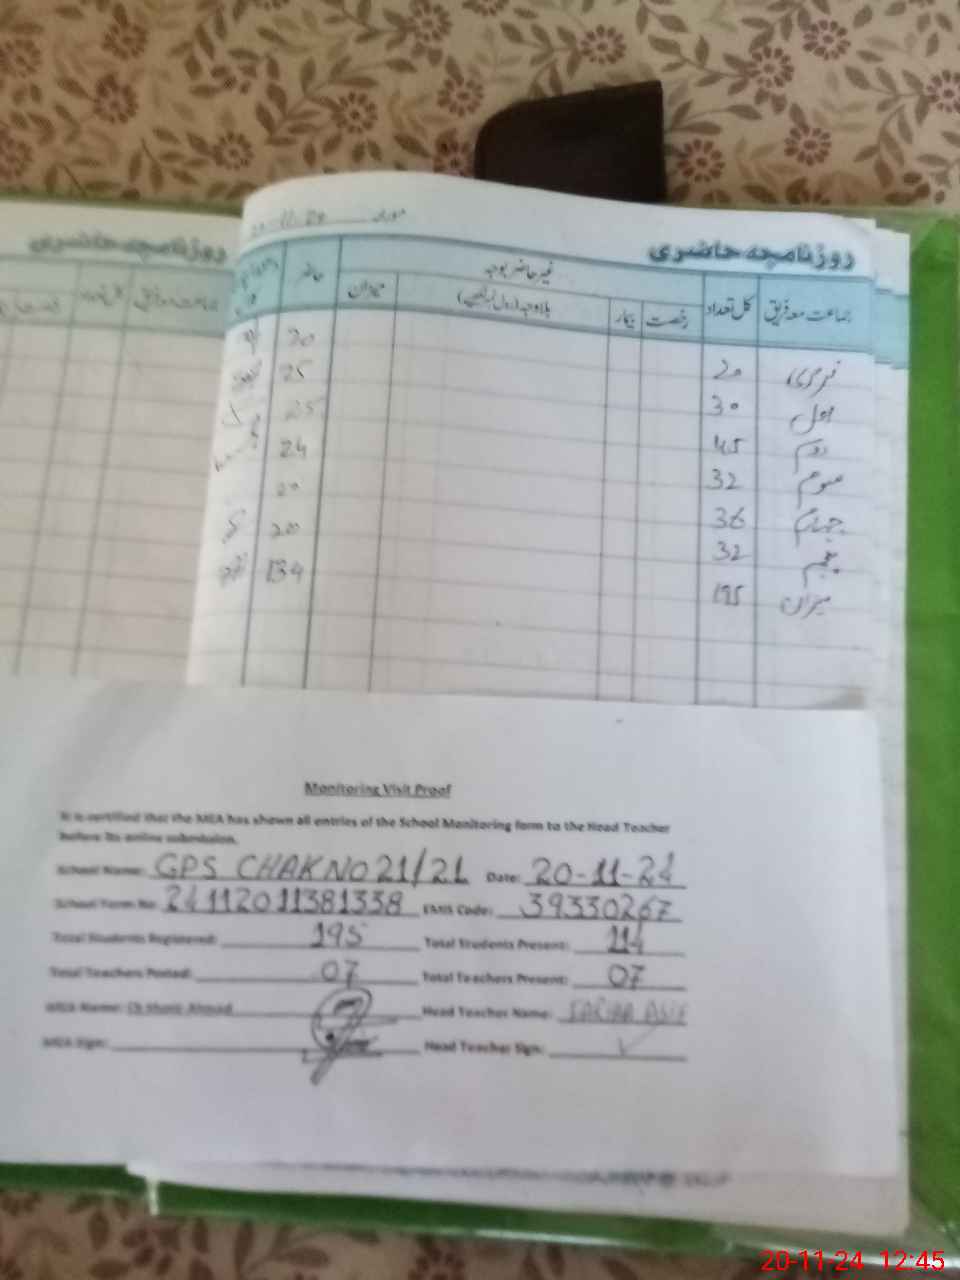 روزنامچہ حاضری
مورخہ 20-11-20
جماعت معہ فریق کل تعداد غیر حاضر بوجہ حاضر
رخصت بیمار بلاوجہ (رول نمبر لکھیے) میزان
نرسری 20 20
اول 30 25
دوم 45 25
سوم 32 24
چہارم 36 20
پنجم 32 20
میزان 195 134
روزنامچہ حاضری
جماعت معہ فریق کل تعداد
Monitoring Visit Proof
It is certified that the MEA has shown all entries of the School Monitoring form to the Head Teacher
before its online submission.
School Name: GPS CHAK NO 21/21 Date: 20-11-24
School Form No: 24112011381338 EMIS Code: 39330267
Total Students Registered: 195 Total Students Present: 114
Total Teachers Posted: 07 Total Teachers Present: 07
MEA Name: Ahmad Head Teacher Name: ASIF
MEA Sign: Head Teacher Sign:
20-11-24 12:45